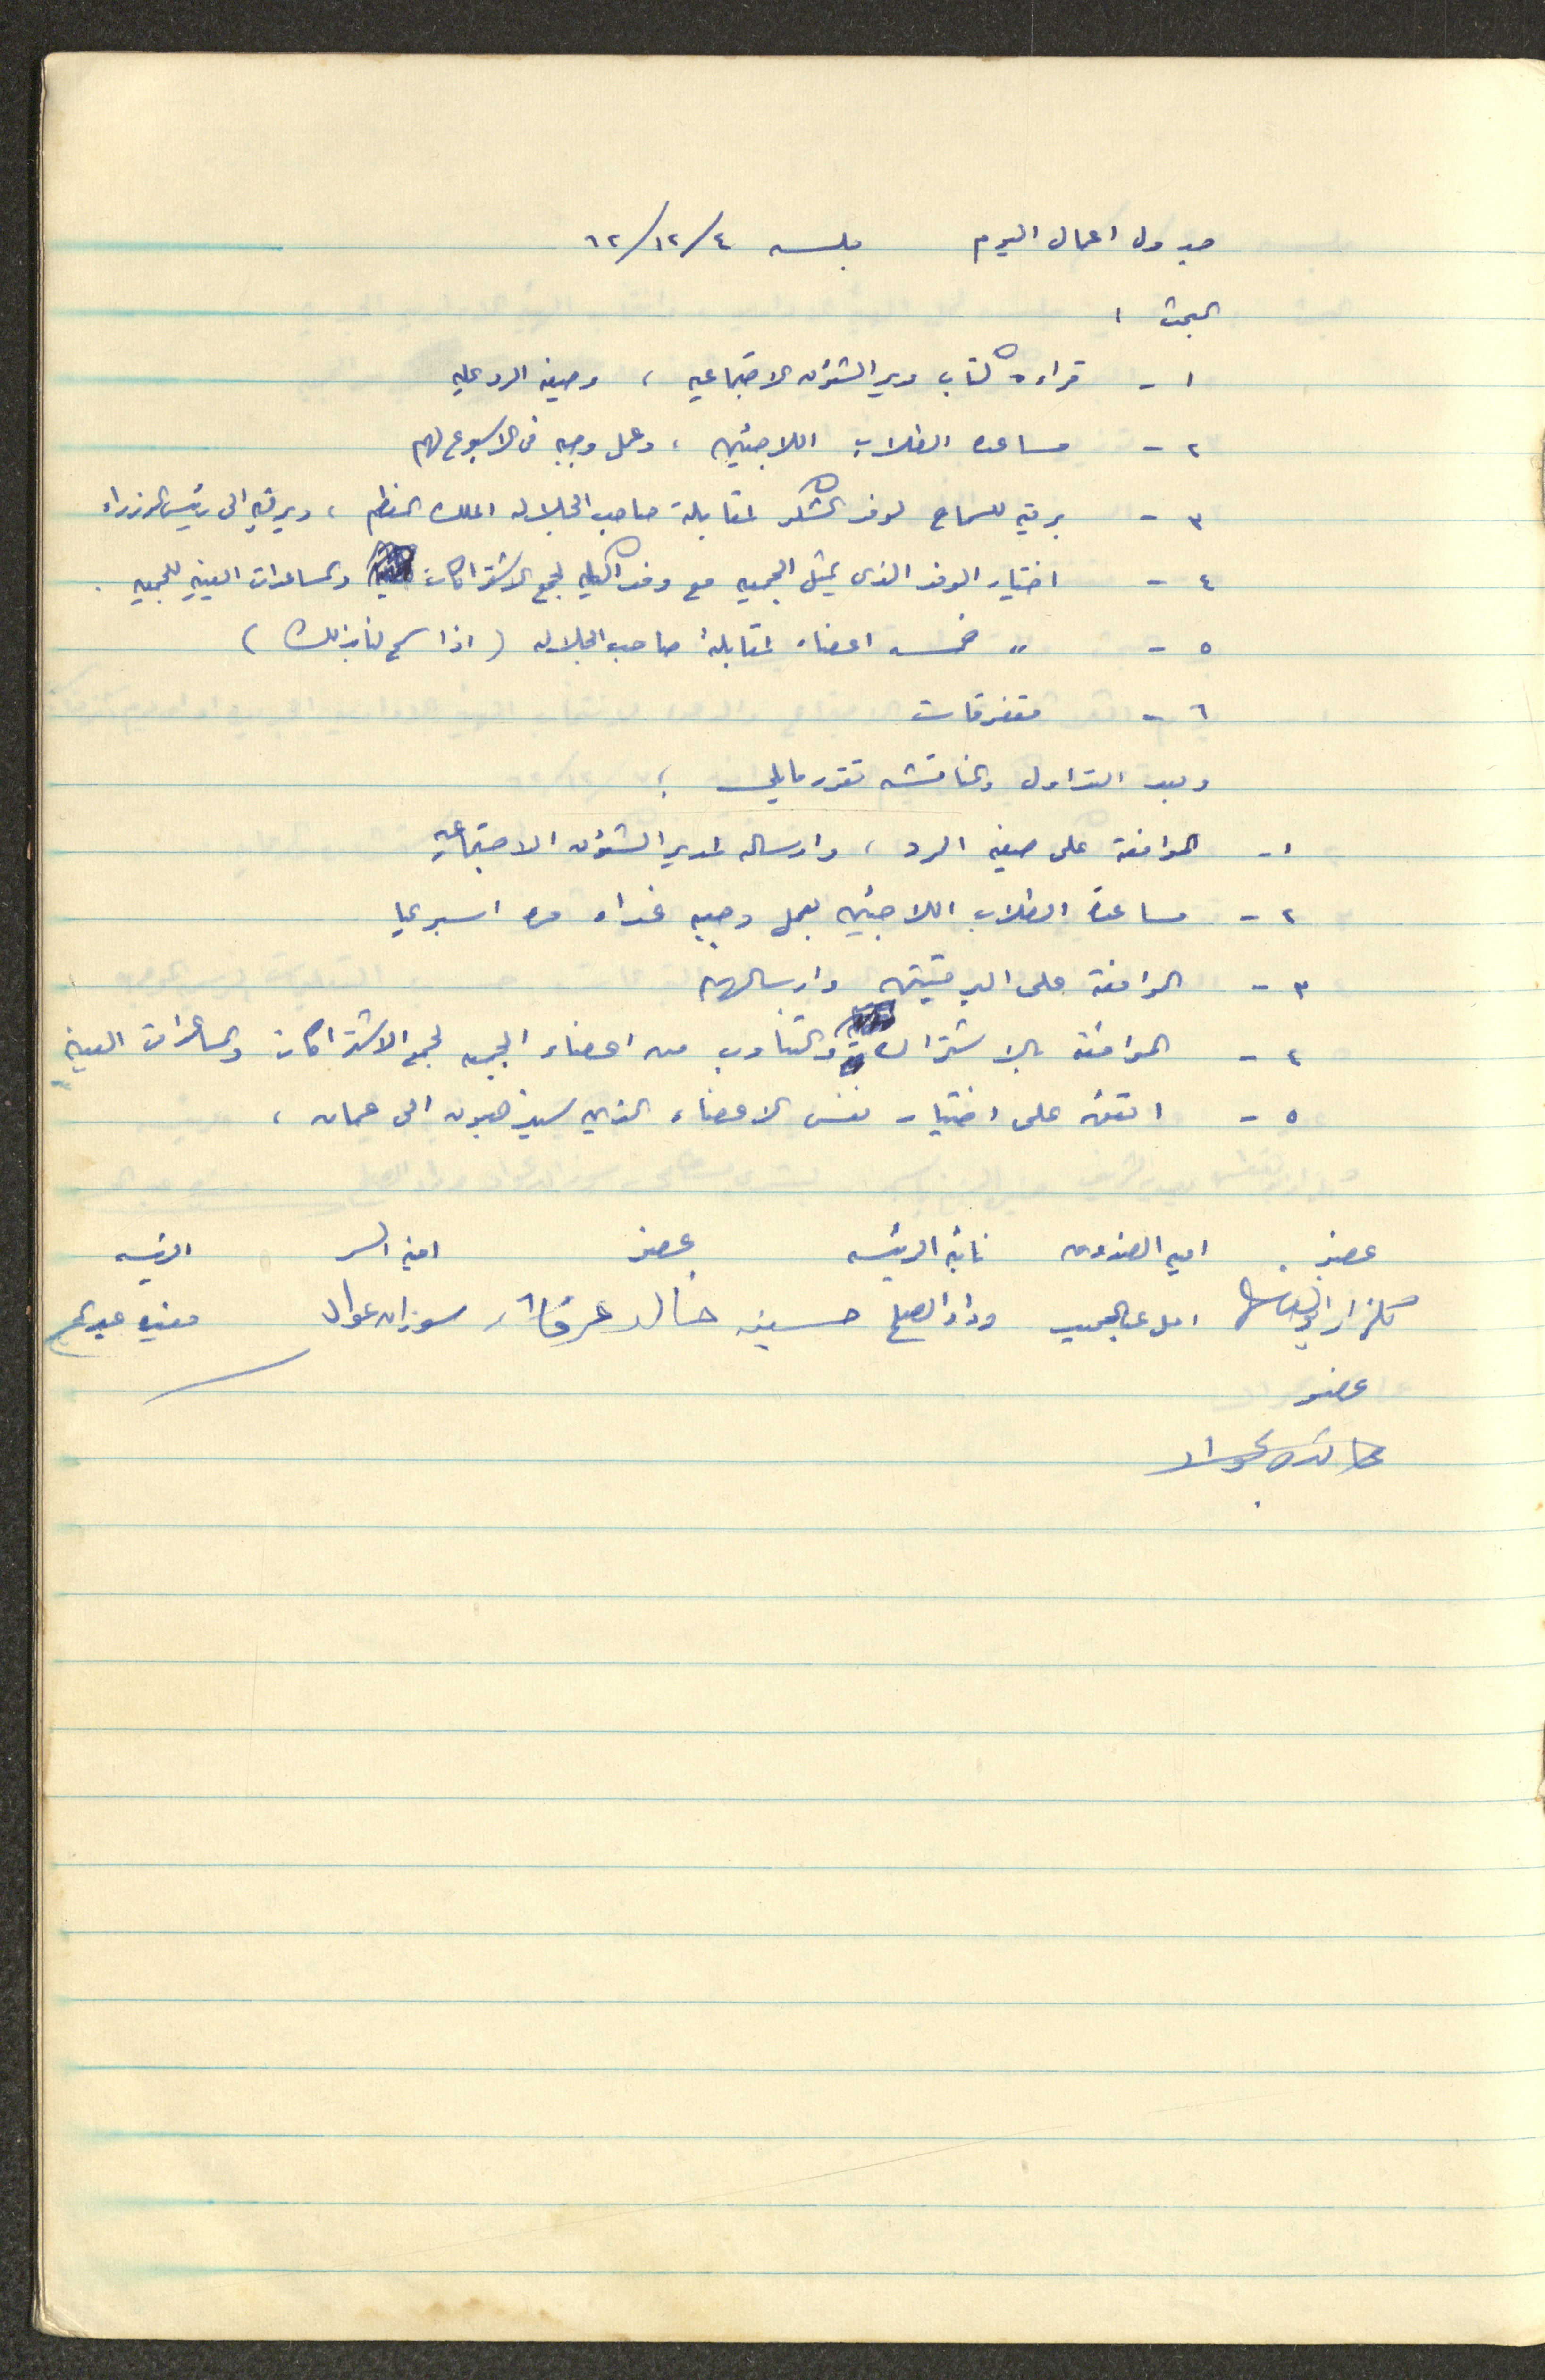 جدول اعمال اليوم جلسه ٤/١٢/٦٢
البحث :
١ - قراءة كتاب مدير الشؤون الاجتماعيه ، وصيغه الرد عليه
٢ - مساعده الطلاب اللاجئين ، وعمل وجبه في الاسبوع لهم
٣ - برقيه للسماح لوفد الشكر لمقابلة صاحب الجلاله الملك المعظم ، وبرقيه الى رئيس الوزراء
٤ - اختيار الوفد الذى يمثل الجمعيه مع وفد الكليه لجمع الاشتراكات والمساعدات العينيه للجمعيه .
٥ - " خمسه اعضاء لمقابلة صاحب الجلاله ( اذا سمح لنا بذلك )
٦ - متفرقات
وبعد التداول والمناقشه تقرر مايلي :
١ - الموافقة على صيغه الرد ، وارساله لمدير الشؤون الاجتماعيه
٢ - مساعدة الطلاب اللاجئين بعمل وجبه غداء مره اسبوعيا
٣ - الموافقة على البرقيتين وارسالهم
٤ - الموافقه بالاشتراك والتناوب من اعضاء الجمعيه لجمع الاشتراكات والمساعدات العينيه
٥ - اتفق على اختيار نفس الاعضاء الذين سيذهبون الى عمان ،
عضو امينه الصندوق نائبة الرئيسه عضو امينه السر الرئيسه
امل عبالمجيب وداد الصلح حسينه خالد سوزان عواد
عضو